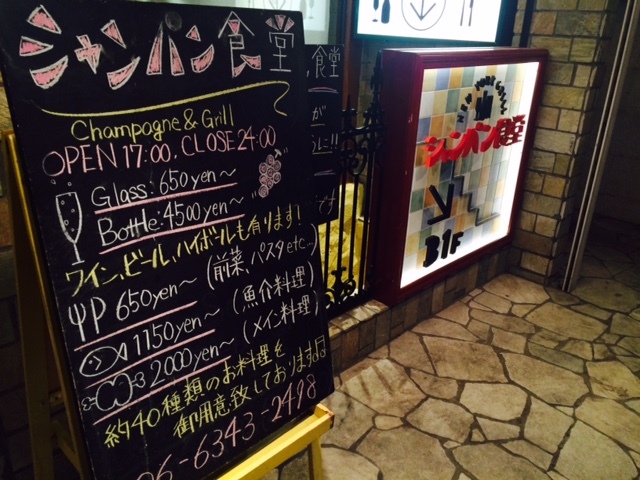 シャンパン食堂
Champagne & Grill
OPEN 17:00. CLOSE 24:00
Glass: 650yen~
Bottle: 4500yen~
ワイン、ビール、ハイボールも有ります!
650yen~ (前菜、パスタetc...)
1150yen~ (魚介料理)
2000yen~ (メイン料理)
約40種類のお料理を
御用意致しております
06-6343-2498
食堂
が
!!
です
シャンパン食堂
B1F